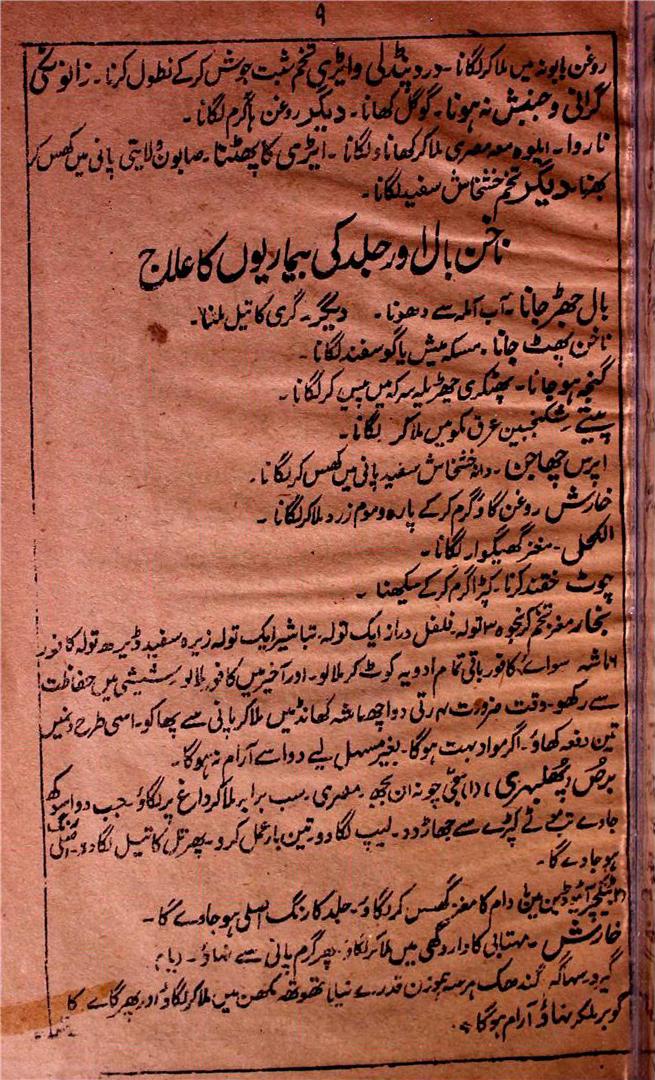 ۹
روغن بابونہ میں ملا کر لگانا۔ درد پنڈلی و ایڑی تخم شبت جوش کر کے نطول کرنا۔ زانو کی
گرانی و جنبش نہ ہونا۔ گوگل کھانا۔ دیگر روغن گرم لگانا۔
ناروا۔ ایلوہ معہ مصری ملا کر کھانا و لگانا۔ ایڑی کا پھٹنا۔ صابون ولایتی پانی میں گھس کر
بھرنا۔ دیگر تخم خشخاش سفید لگانا۔
ناخن بال اور جلد کی بیماریوں کا علاج
بال جھڑ جانا۔ آب آملہ سے دھونا۔ دیگر۔ گری کا تیل ملنا۔
ناخن پھٹ جانا۔ مسکہ میش یا گوسفند لگانا۔
گنجہ ہو جانا۔ پھٹکری سرکہ میں پیس کر لگانا۔
پتے۔ سکنجبین عرق مکو میں ملا کر لگانا۔
اپرس چھاجن۔ دانہ خشخاش سفید پانی میں گھس کر لگانا۔
خارش روغن گاؤ گرم کر کے پارہ و موم زرد ملا کر لگانا۔
مغز گھیگوار لگانا۔
چوٹ کرنا۔ کپڑا گرم کر کے سیکھنا۔
بخار مغز تخم کرنجوہ ۳ تولہ۔ فلفل دراز ایک تولہ۔ تباشیر ایک تولہ زیرہ سفید ڈیڑھ تولہ کافور
۶ ماشہ سوائے کافور باقی تمام ادویہ کوٹ کر ملا لو۔ اور آخیر میں کافور ملا لو شیشی میں حفاظت
سے رکھو۔ وقت ضرورت رتی دوا چھ ماشہ کھانڈ میں ملا کر پانی سے پھاکو۔ اسی طرح دن میں
تین دفعہ کھاؤ۔ اگر مواد بہت ہوگا۔ بغیر مسہل لیے دوا سے آرام نہ ہوگا۔
برص (پھلبہری) (۱) سجی چونہ ان بجھ۔ مصری۔ سب برابر ملا کر داغ پر لگاؤ۔ جب دوا سوکھ
جاوے تب موٹے کپڑے سے جھاڑ دو۔ لیپ لگا دو تین بار عمل کرو۔ پھر تل کا تیل لگا دو۔ اصلی رنگ
ہو جاوے گا۔
(۲) ٹنکچر آیوڈین میں دام کا مغز گھس کر لگاؤ۔ جلد کا رنگ اصلی ہو جاوے گا۔
خارش۔ مہتابی کا دارو گھی میں ملا کر لگاؤ۔ پھر گرم پانی سے نہاؤ۔ (یا)
گیرو۔ سہاگہ گندھک ہر سہ ہموزن قدرے نیلا تھوتھہ مکھن میں ملا کر لگاؤ اور پھر گائے کا
گوبر ملکر نہاؤ آرام ہوگا۔